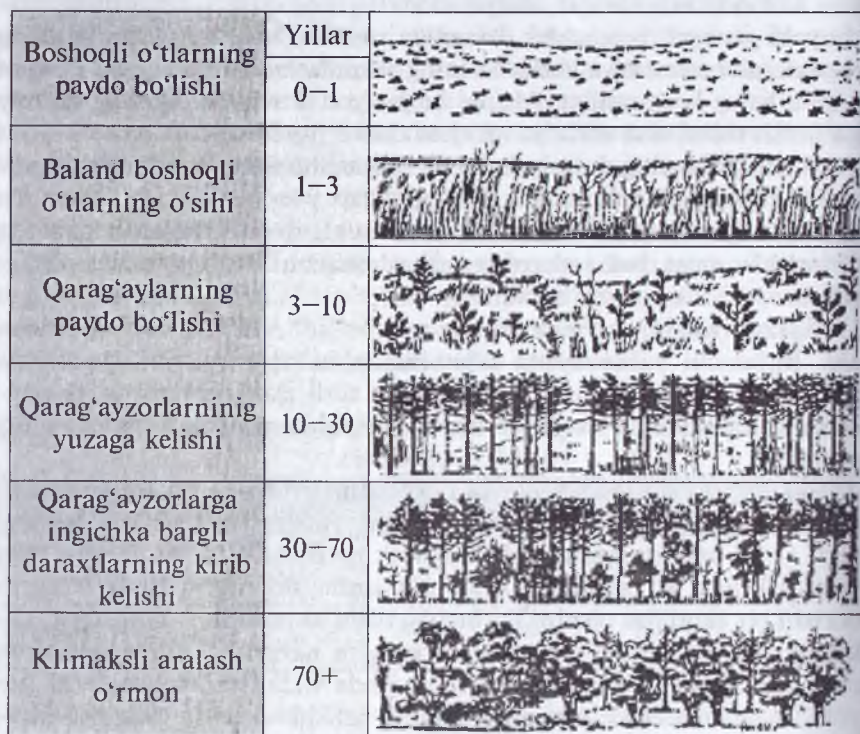 Boshoqli o‘tlarning
paydo bo‘lishi
Yillar
0–1
Baland boshoqli
o‘tlarning o‘sihi
1–3
Qarag‘aylarning
paydo bo‘lishi
3–10
Qarag‘ayzorlarninig
yuzaga kelishi
10–30
Qarag‘ayzorlarga
ingichka bargli
daraxtlarning kirib
kelishi
30–70
Klimaksli aralash
o‘rmon
70+